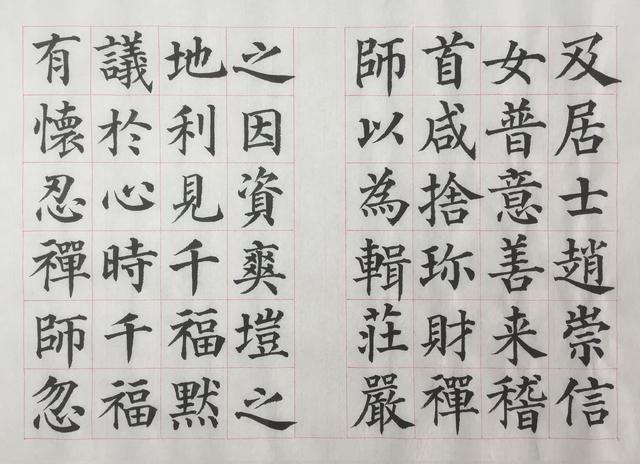 及居士趙崇信
女普意善来稽
首咸捨珎財禪
師以為輯莊嚴
之因資爽塏之
地利見千福默
議於心時千福
有懷忍禪師忽